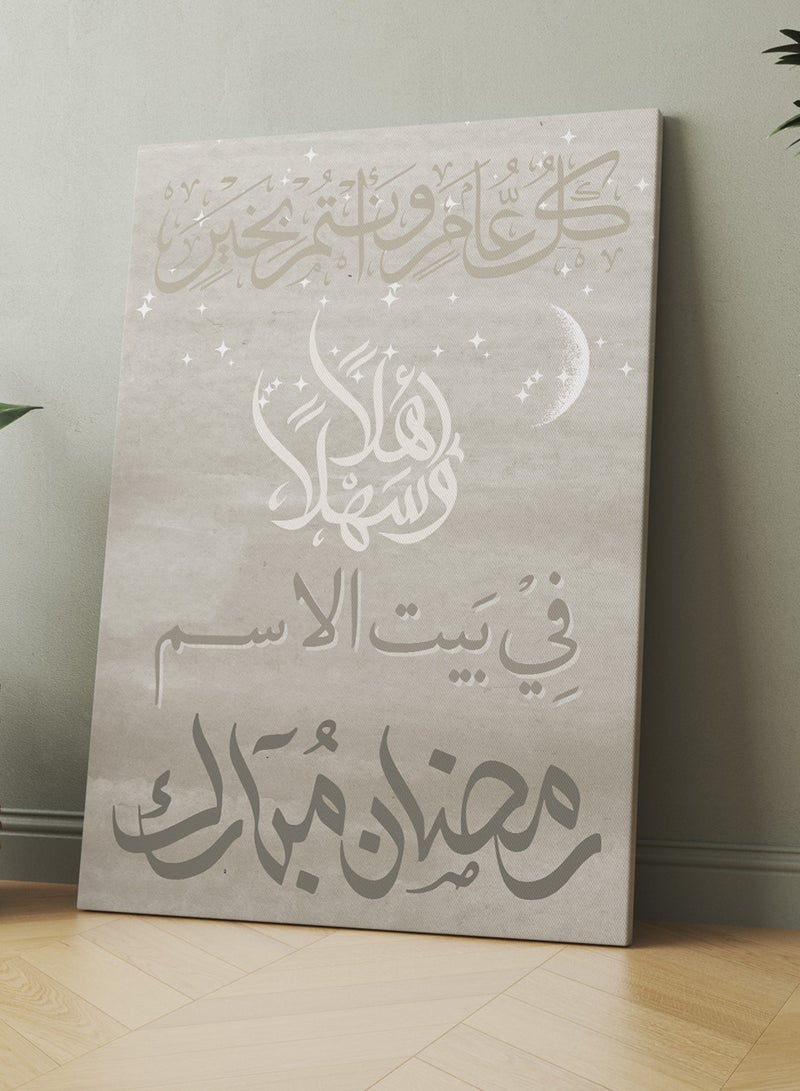 كُلُّ عَامٍ وَأَنْتُمْ بِخَيْرٍ
أهلاً
وسهلاً
فِيْ بَيت الاسم
رمضان مُبَارك